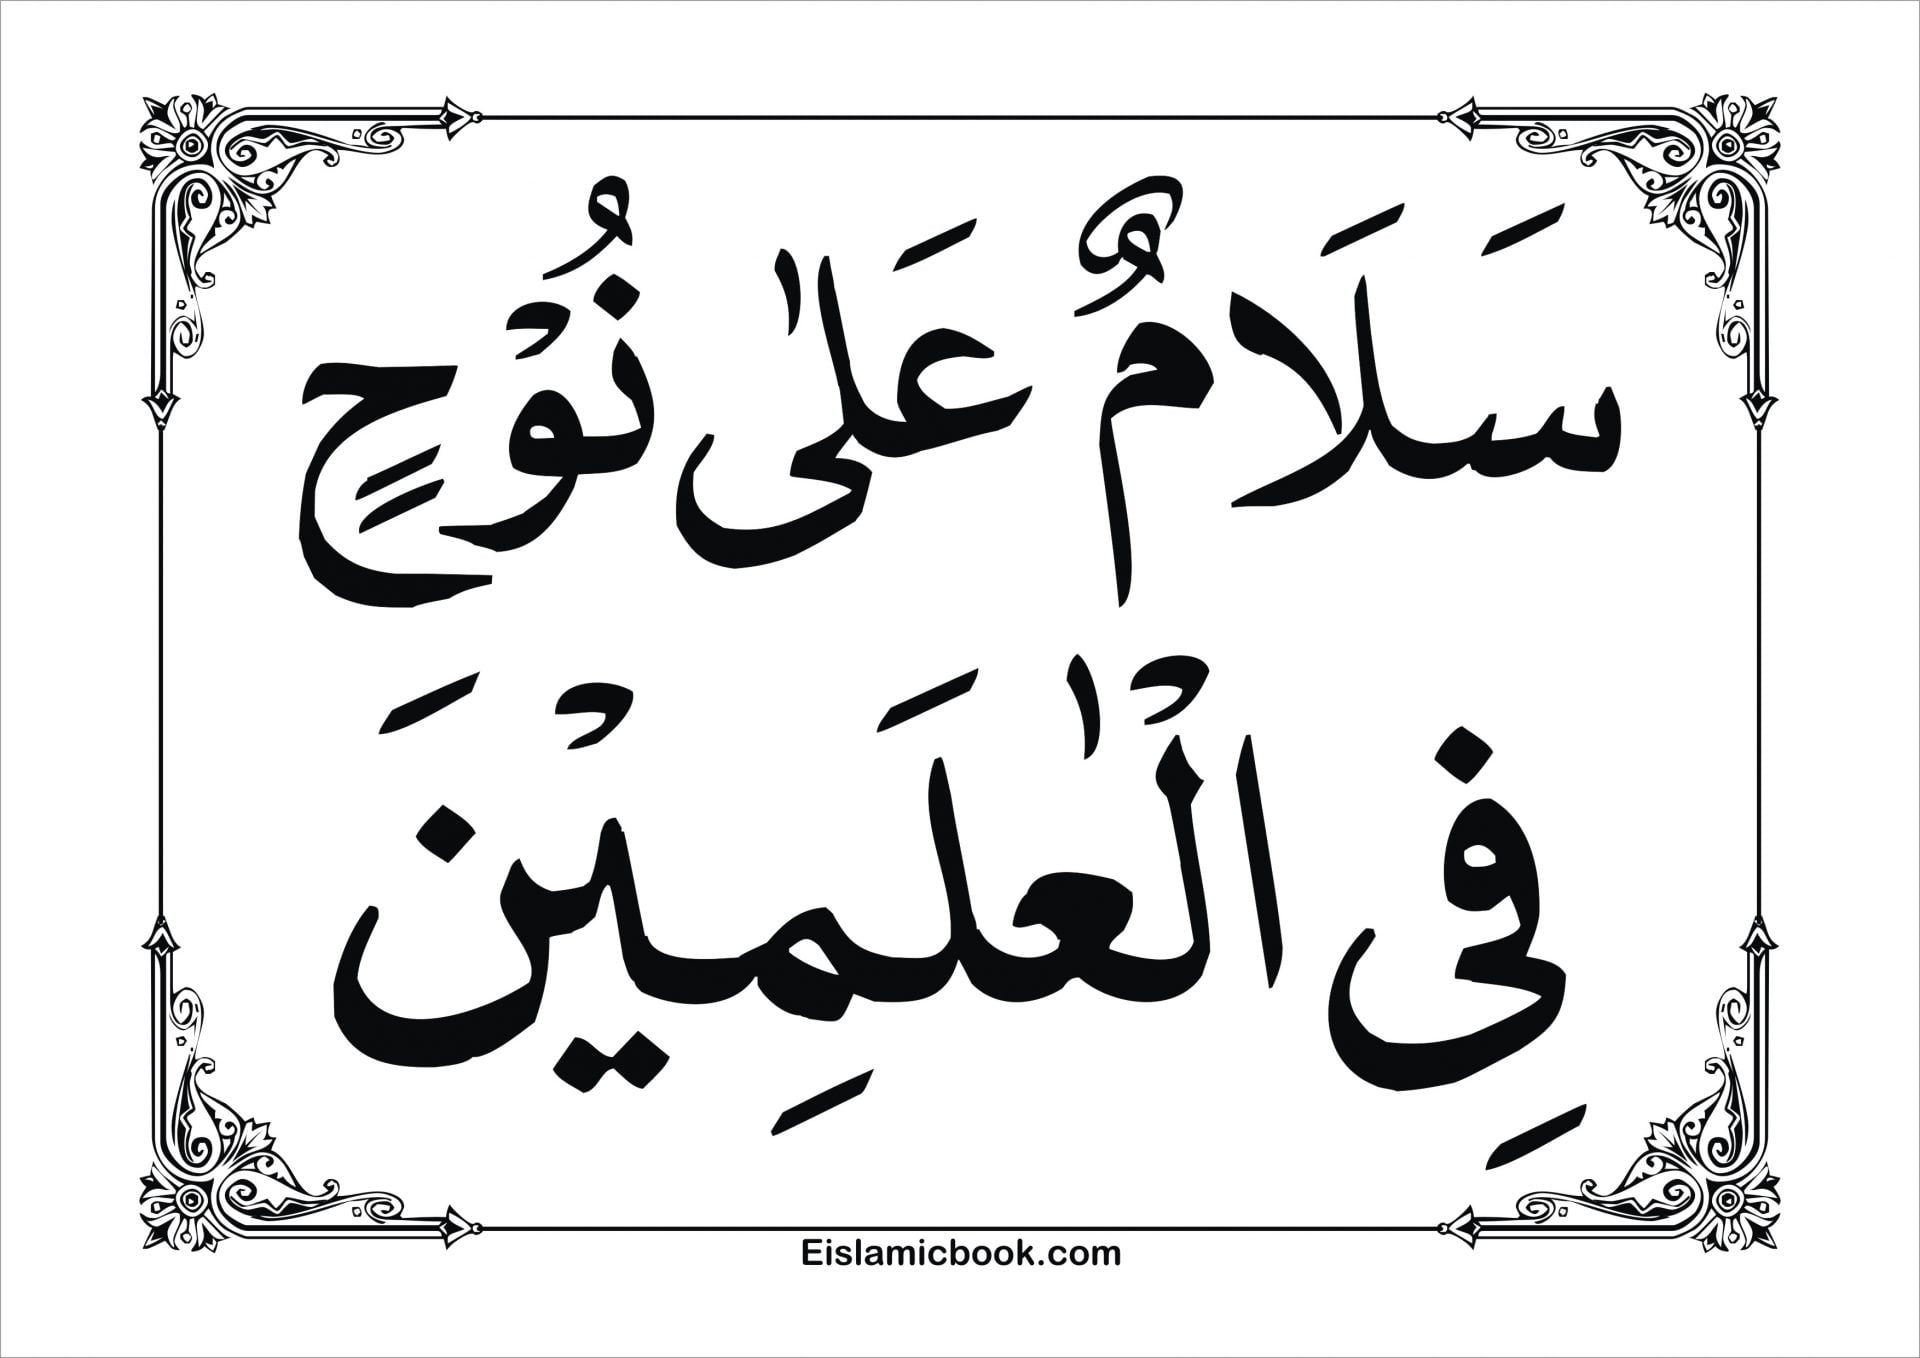 سَلَامٌ عَلٰی نُوْحٍ
فِی الْعٰلَمِیْنَ
Eislamicbook.com